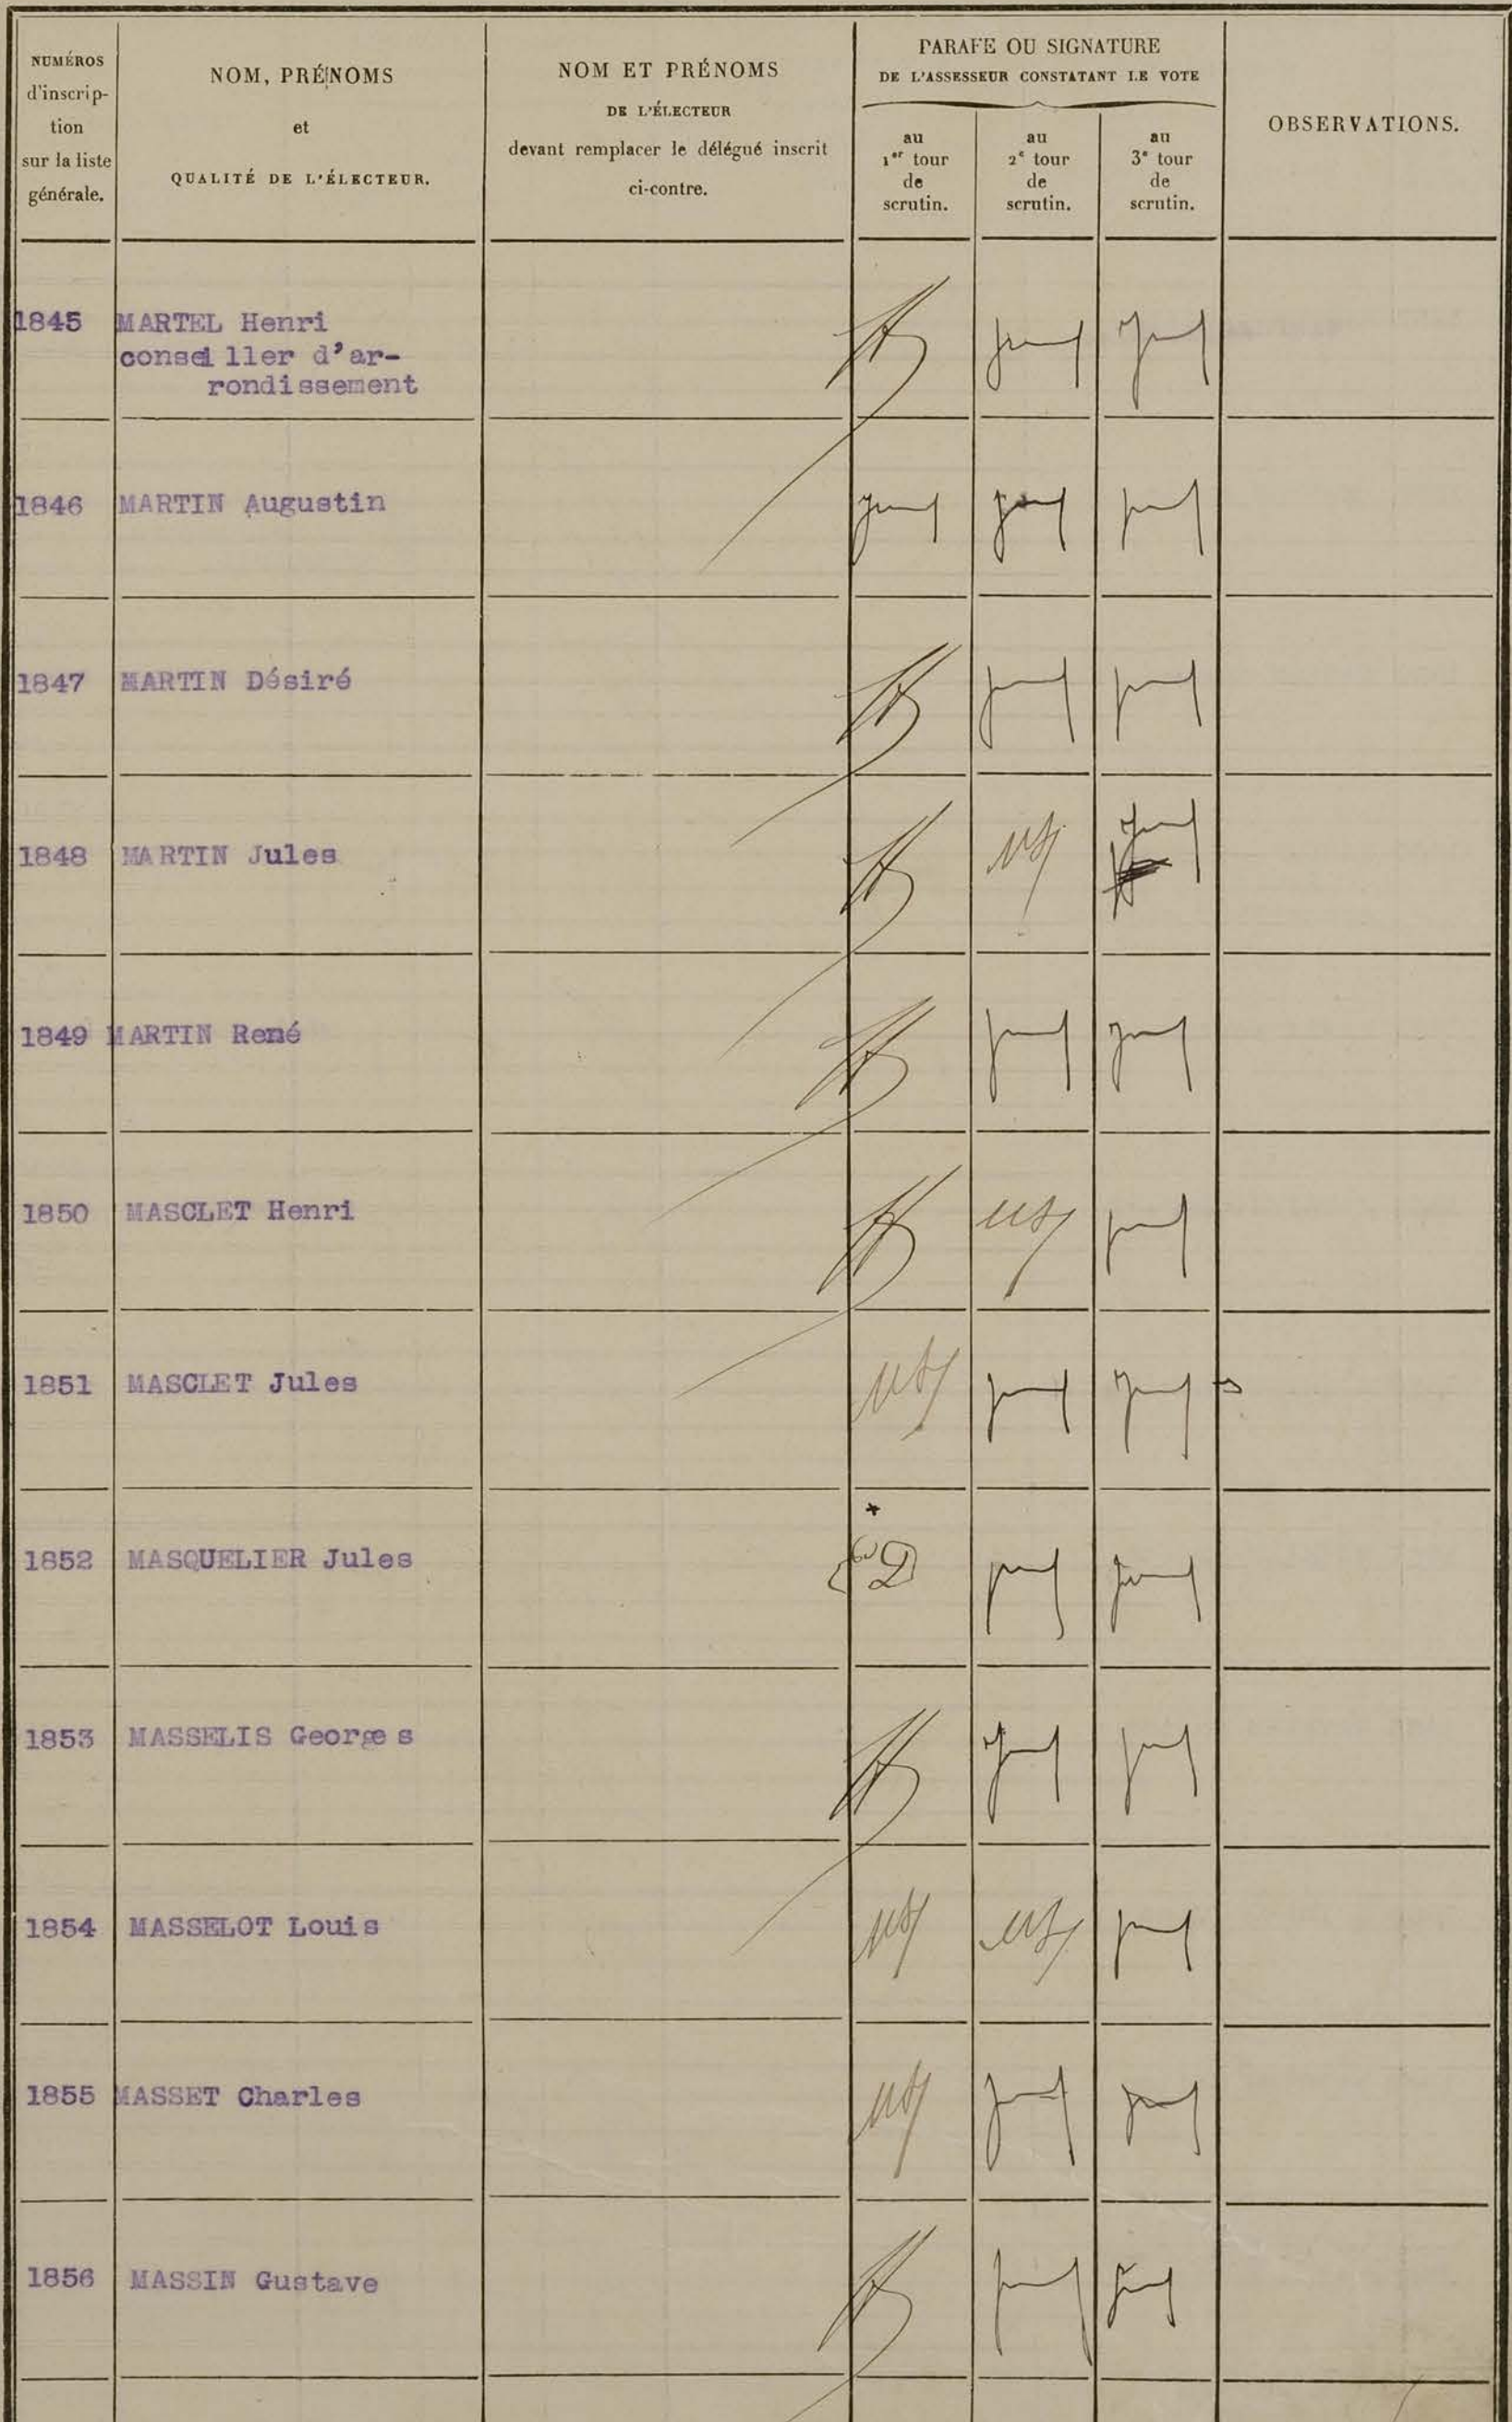 NUMÉROS
d'inscrip-
tion
sur la liste
générale.
NOM, PRÉNOMS
et
QUALITÉ DE L'ÉLECTEUR.
NOM ET PRÉNOMS
DE L'ÉLECTEUR
devant remplacer le délégué inscrit
ci-contre.
PARAFE OU SIGNATURE
DE L'ASSESSEUR CONSTATANT LE VOTE
au
1er tour
de
scrutin.
au
2e tour
de
scrutin.
au
3e tour
de
scrutin.
OBSERVATIONS.
1845 MARTEL Henri
conseiller d'ar-
rondissement
1846 MARTIN Augustin
1847 MARTIN Désiré
1848 MARTIN Jules
1849 MARTIN René
1850 MASCLET Henri
1851 MASCLET Jules
1852 MASQUELIER Jules
1853 MASSELIS Georges
1854 MASSELOT Louis
1855 MASSET Charles
1856 MASSIN Gustave